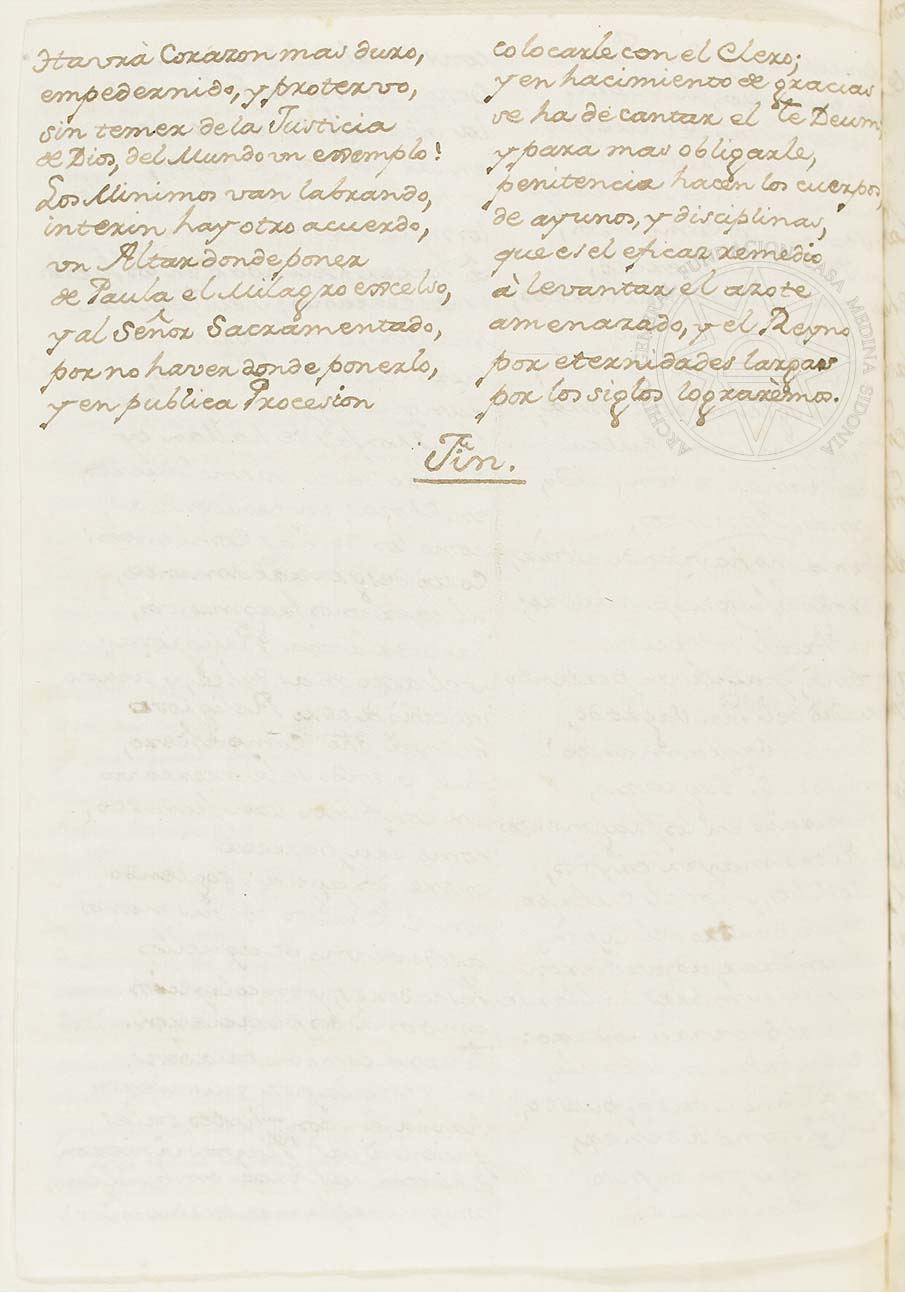 Havrà Corazon mas duro,
empedernido, y protervo,
sin temer de la Justicia
de Dios, del Mundo vn exemplo!
Los Minimos van labrando,
interin hay otro acuerdo,
vn Altar donde poner
de Paula el Milagro excelso,
y al Señor Sacramentado,
por no haver donde ponerlo,
y en publica Procesion
colocarle con el Clero;
y en hacimiento de gracias
se ha de cantar el Te Deum,
y para mas obligarle,
penitencia hacen los cuerpos,
de ayunos, y disciplinas,
que es el eficaz remedio
à levantar el azote
amenazado, y el Reyno
por eternidades largas
por los siglos lograrèmos.
Fin.
ARCHIVO GENERAL FUNDACION CASA MEDINA SIDONIA